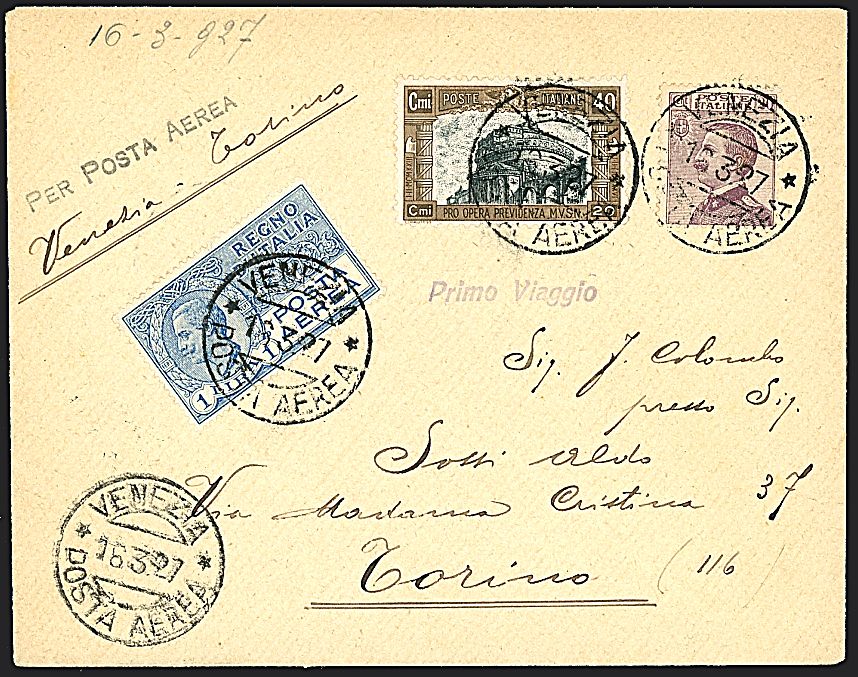 16-3-927
PER POSTA AEREA
Venezia - Torino
Cmi POSTE ITALIANE 40
Cmi PRO OPERA PREVIDENZA M.V.S.N. 20
VENEZIA
POSTA AEREA
POSTE
ITALIANE
VENEZIA
16.3.27
POSTA AEREA
REGNO
D'ITALIA
POSTA
AEREA
1 LIRA
VENEZIA
16.3.27
POSTA AEREA
Primo Viaggio
Sig. J. Colombo
presso Sig.
Sotti Aldo
Via Madama Cristina 37
Torino (116)
VENEZIA
16.3.27
POSTA AEREA